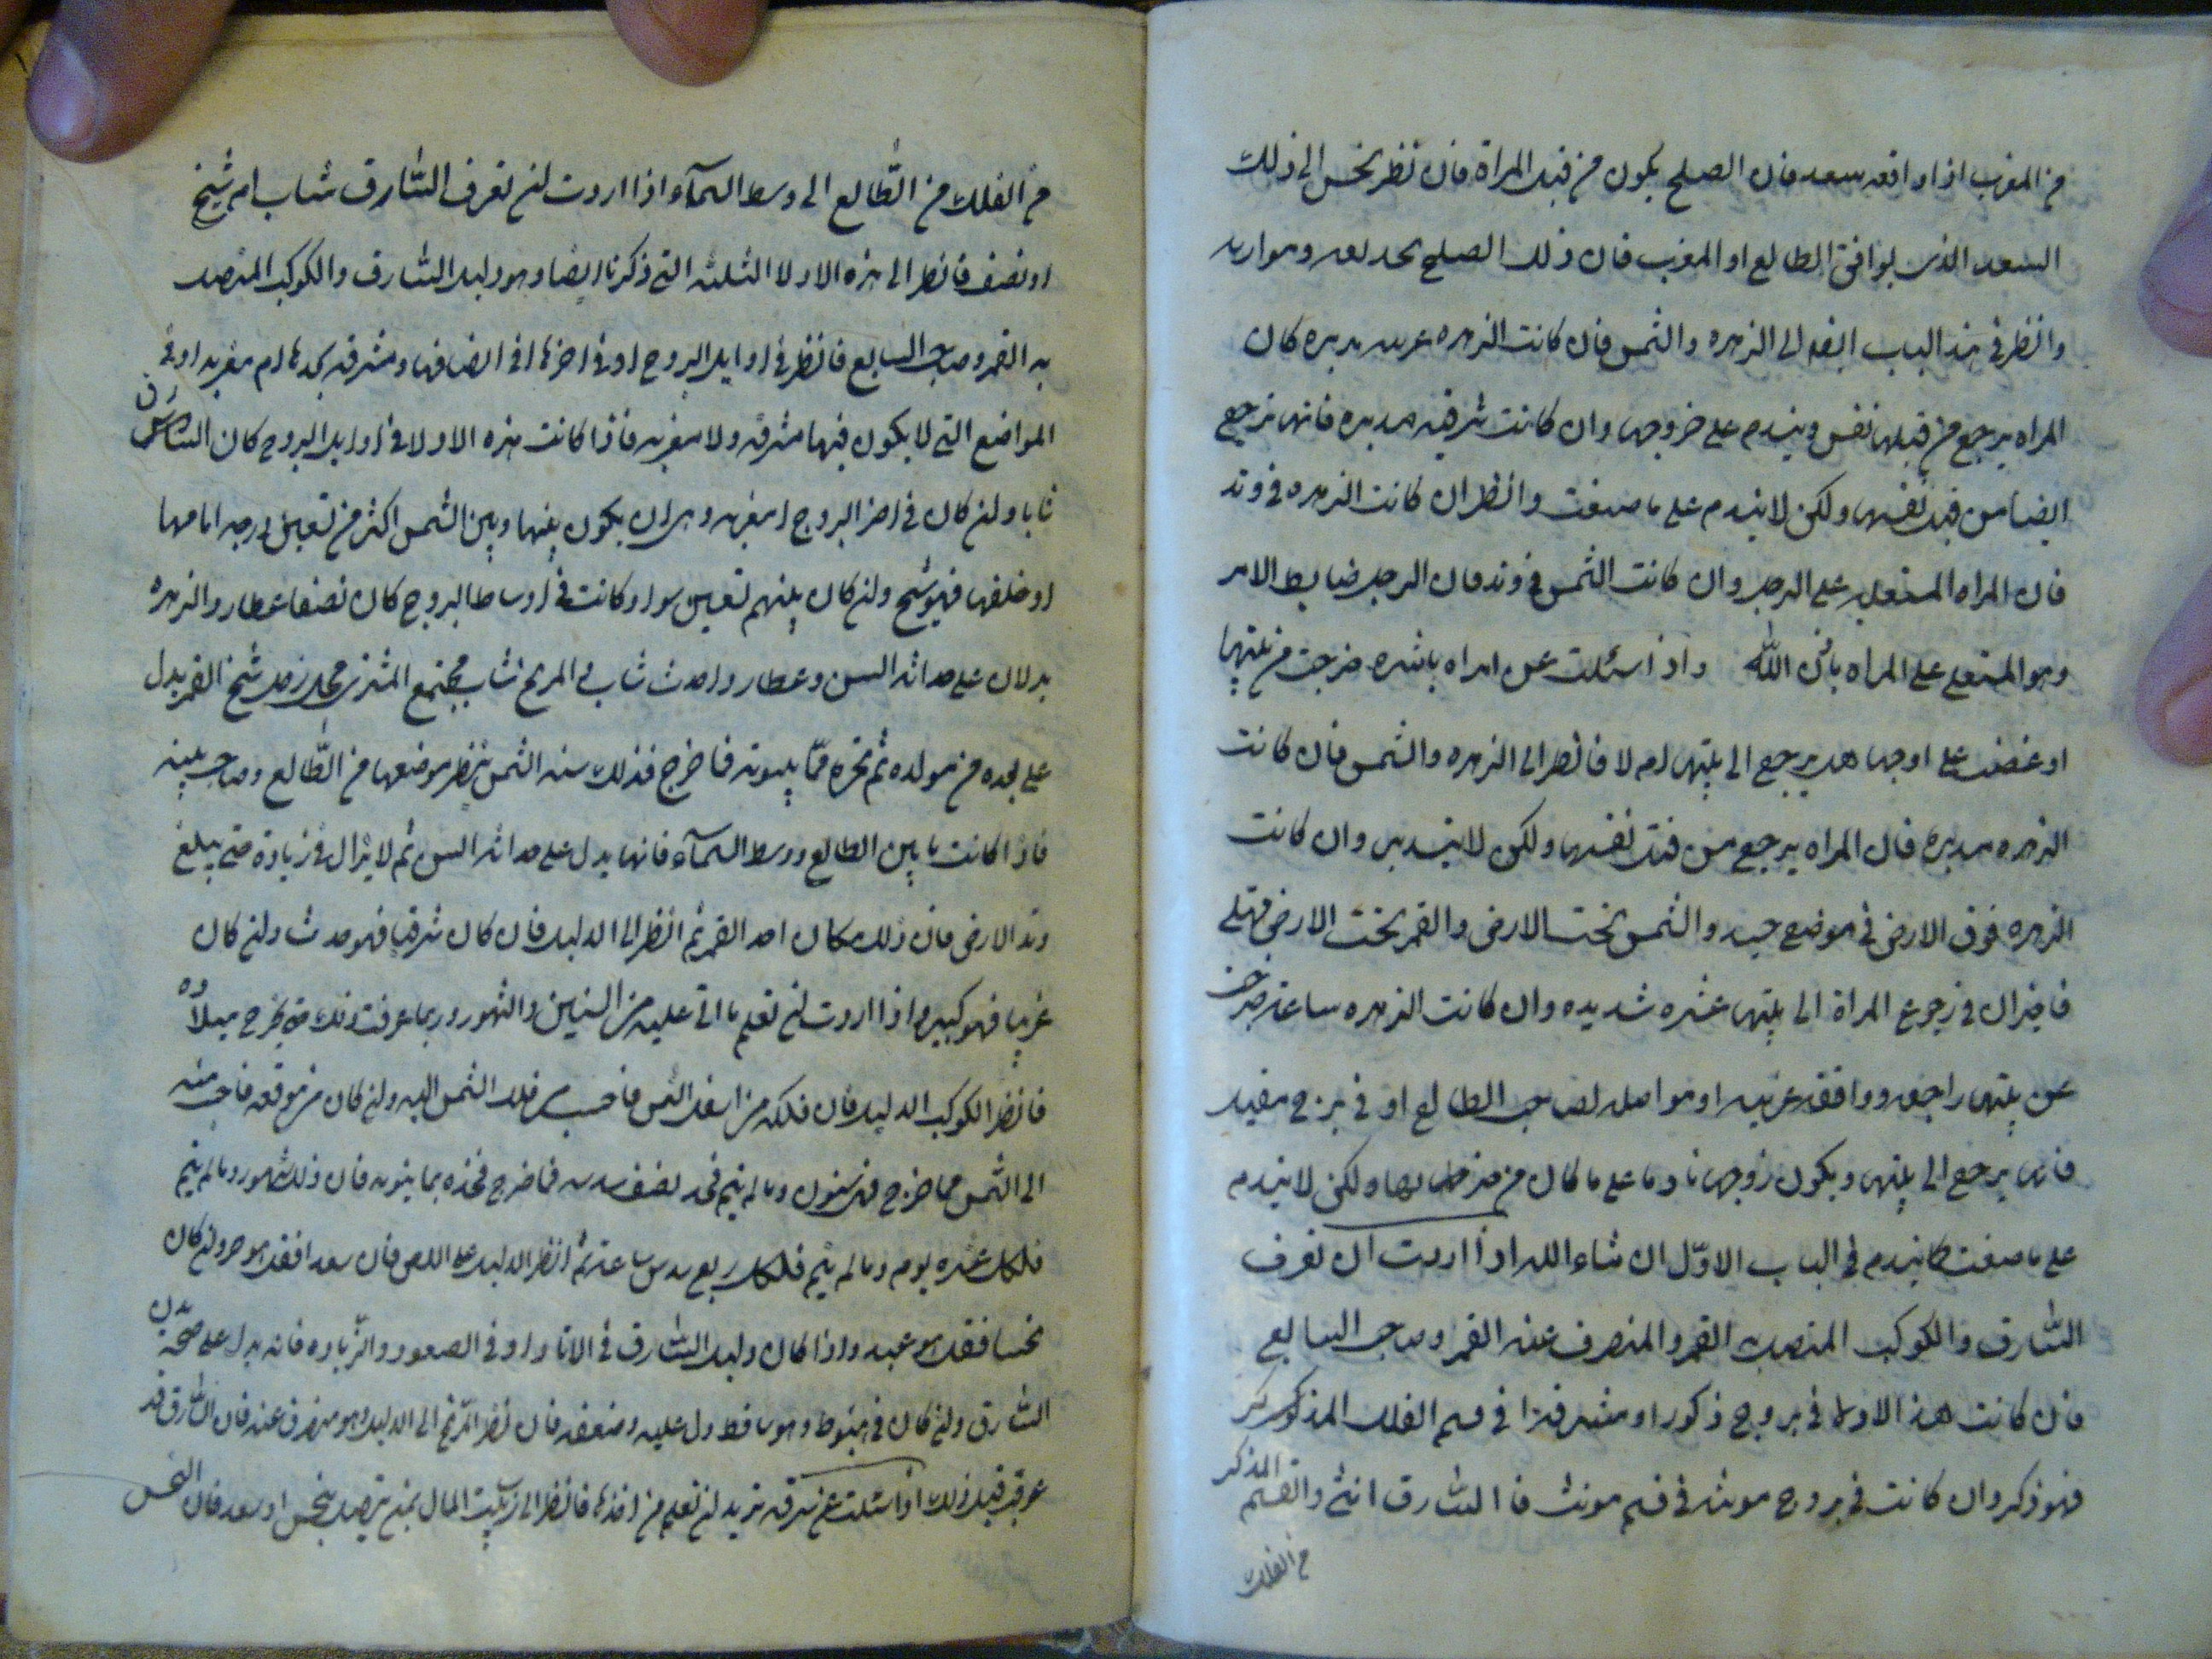 من المغرب اذا وافقه سعد فان الصلح يكون من قبل المراة فان نظر نحس الى ذلك
السعد الذى يوافق الطالع او المغرب فان ذلك الصلح
وانظر فى هذا الباب ايضا الى الزهره والشمس فان كانت الزهره غربيه مدبره كان
المراه يرجع من قبلها نفس ويندم على خروجها وان كانت شرقيه مدبره فانها ترجع
ايضا من قبل نفسها ولكن لا يندم على ما صنعت وانظر ان كانت الزهره فى وتد
فان المراه المستعليه على الرجل وان كانت الشمس فى وتد فان الرجل ضابط الامر
وهو المستعلى على المراه باذن الله واذا سئلت عن امراه ناشزه خرجت من بيتها
او غضبت على زوجها هل يرجع الى بيتها ام لا فانظر الى الزهره والشمس فان كانت
الزهره مدبره فان المراه يرجع من قبل نفسها ولكن لا يندم وان كانت
الزهره فوق الارض فى موضع جيد والشمس تحت الارض والقمر تحت الارض
فى رجوع المراة الى بيتها عشره شديده وان كانت الزهره ساعة خرجت
عن بيتها راجعه ووافقه غربيه او مواصله لصاحب الطالع او فى برج مقبل
فانها يرجع الى بيتها ويكون زوجها نادما على ما كان من ولكن لا يندم
على ما صنعت كما يندم فى الباب الاوّل ان شاء الله اذا اردت ان تعرف
السّارق والكوكب المتصل به القمر والمنصرف عنه القمر وصاحب السابع
فان كانت هذا الاولا فى بروج ذكور او مشرقة فى قسم الفلك المذكر
فهو ذكر وان كانت فى بروج مونثه فى قسم مونث فا السّارق انثى والقسم المذكر
من الفلك
من الفلك من الطّالع الى وسط السمآء اذا اردت ان تعرف السّارق شاب ام شيخ
او نصف فانظر الى هذه الاولا الثلثه التى ذكرنا ايضا وهو دليل السّارق والكوكب المتصل
به القمر وصاحب السابع فانظر فى اوايل البروج او فى اخرها او فى انصافها ومشرقه تجدها ام مغربه او فى
المواضع التى لا يكون فيها مشرقه ولا مغربه فاذا كانت هذه الاولا فى اوايل البروج كان السّارق
شابا وان كان فى اخر البروج او مغربه وهو ان يكون بينها وبين الشمس اكثر من تسعين درجه امامها
او خلفها فهو شيخ وان كان بينهم تسعين سوا وكانت فى اوساط البروج كان نصفا عطارد والزهره
يدلان على حداثه السن وعطارد احدث شاب و المريخ شاب مجتمع المشترى زحل شيخ القمر يدل
على بعده من مولده ثم فما خرج فذلك سنه الشمس ينظر موضعها من الطّالع وصاحب بيته
فاذا كانت ما بين الطالع ووسط السمآء فانها يدل على حداثه السن ثم لا يزال فى زيادة حتى يبلغ
وتد الارض فان ذلك مكان احد القمر ثم انظر الى الدليل فان كان شرقيا فهو حدث وان كان
غربيا فهو كبير و اذا اردت ان تعلم ما اتى عليه من السنين والشهور وربما عرفت ذلك حتى يخرج ميلاده
فانظر الكوكب الدليل فان فلكه من اسفل الشمس فاحسب من فلك الشمس اليه وان كان من فوقه فاحسب منه
الى الشمس فما خرج فهن سنون وما لم يتم فخذ نصف سدسه فما خرج فخذه فان ذلك شهور وما لم يتم
فلكل عشره يوم وما لم يتم فلكل ربع سدس ساعة ثم انظر الدليل على اللص فان سعد افقد هو حر وان كان
نحسا فقد هو عبد واذا كان دليل السّارق فى الاوتاد او فى الصعود والزّياده فانه يدل على صحّة بدن
السّارق وان كان فى هبوط وهو ساقط دل عليه وضعفه فان نظر المرّيخ الى الدليل وهو منصرف عنه فان السّارق قد
عوقب قبل ذلك اذا سئلت عن سرقه تريد ان تعلم من اخذها فانظر الى رب بيت المال بمن يتصل بنحس او سعد فان النحس